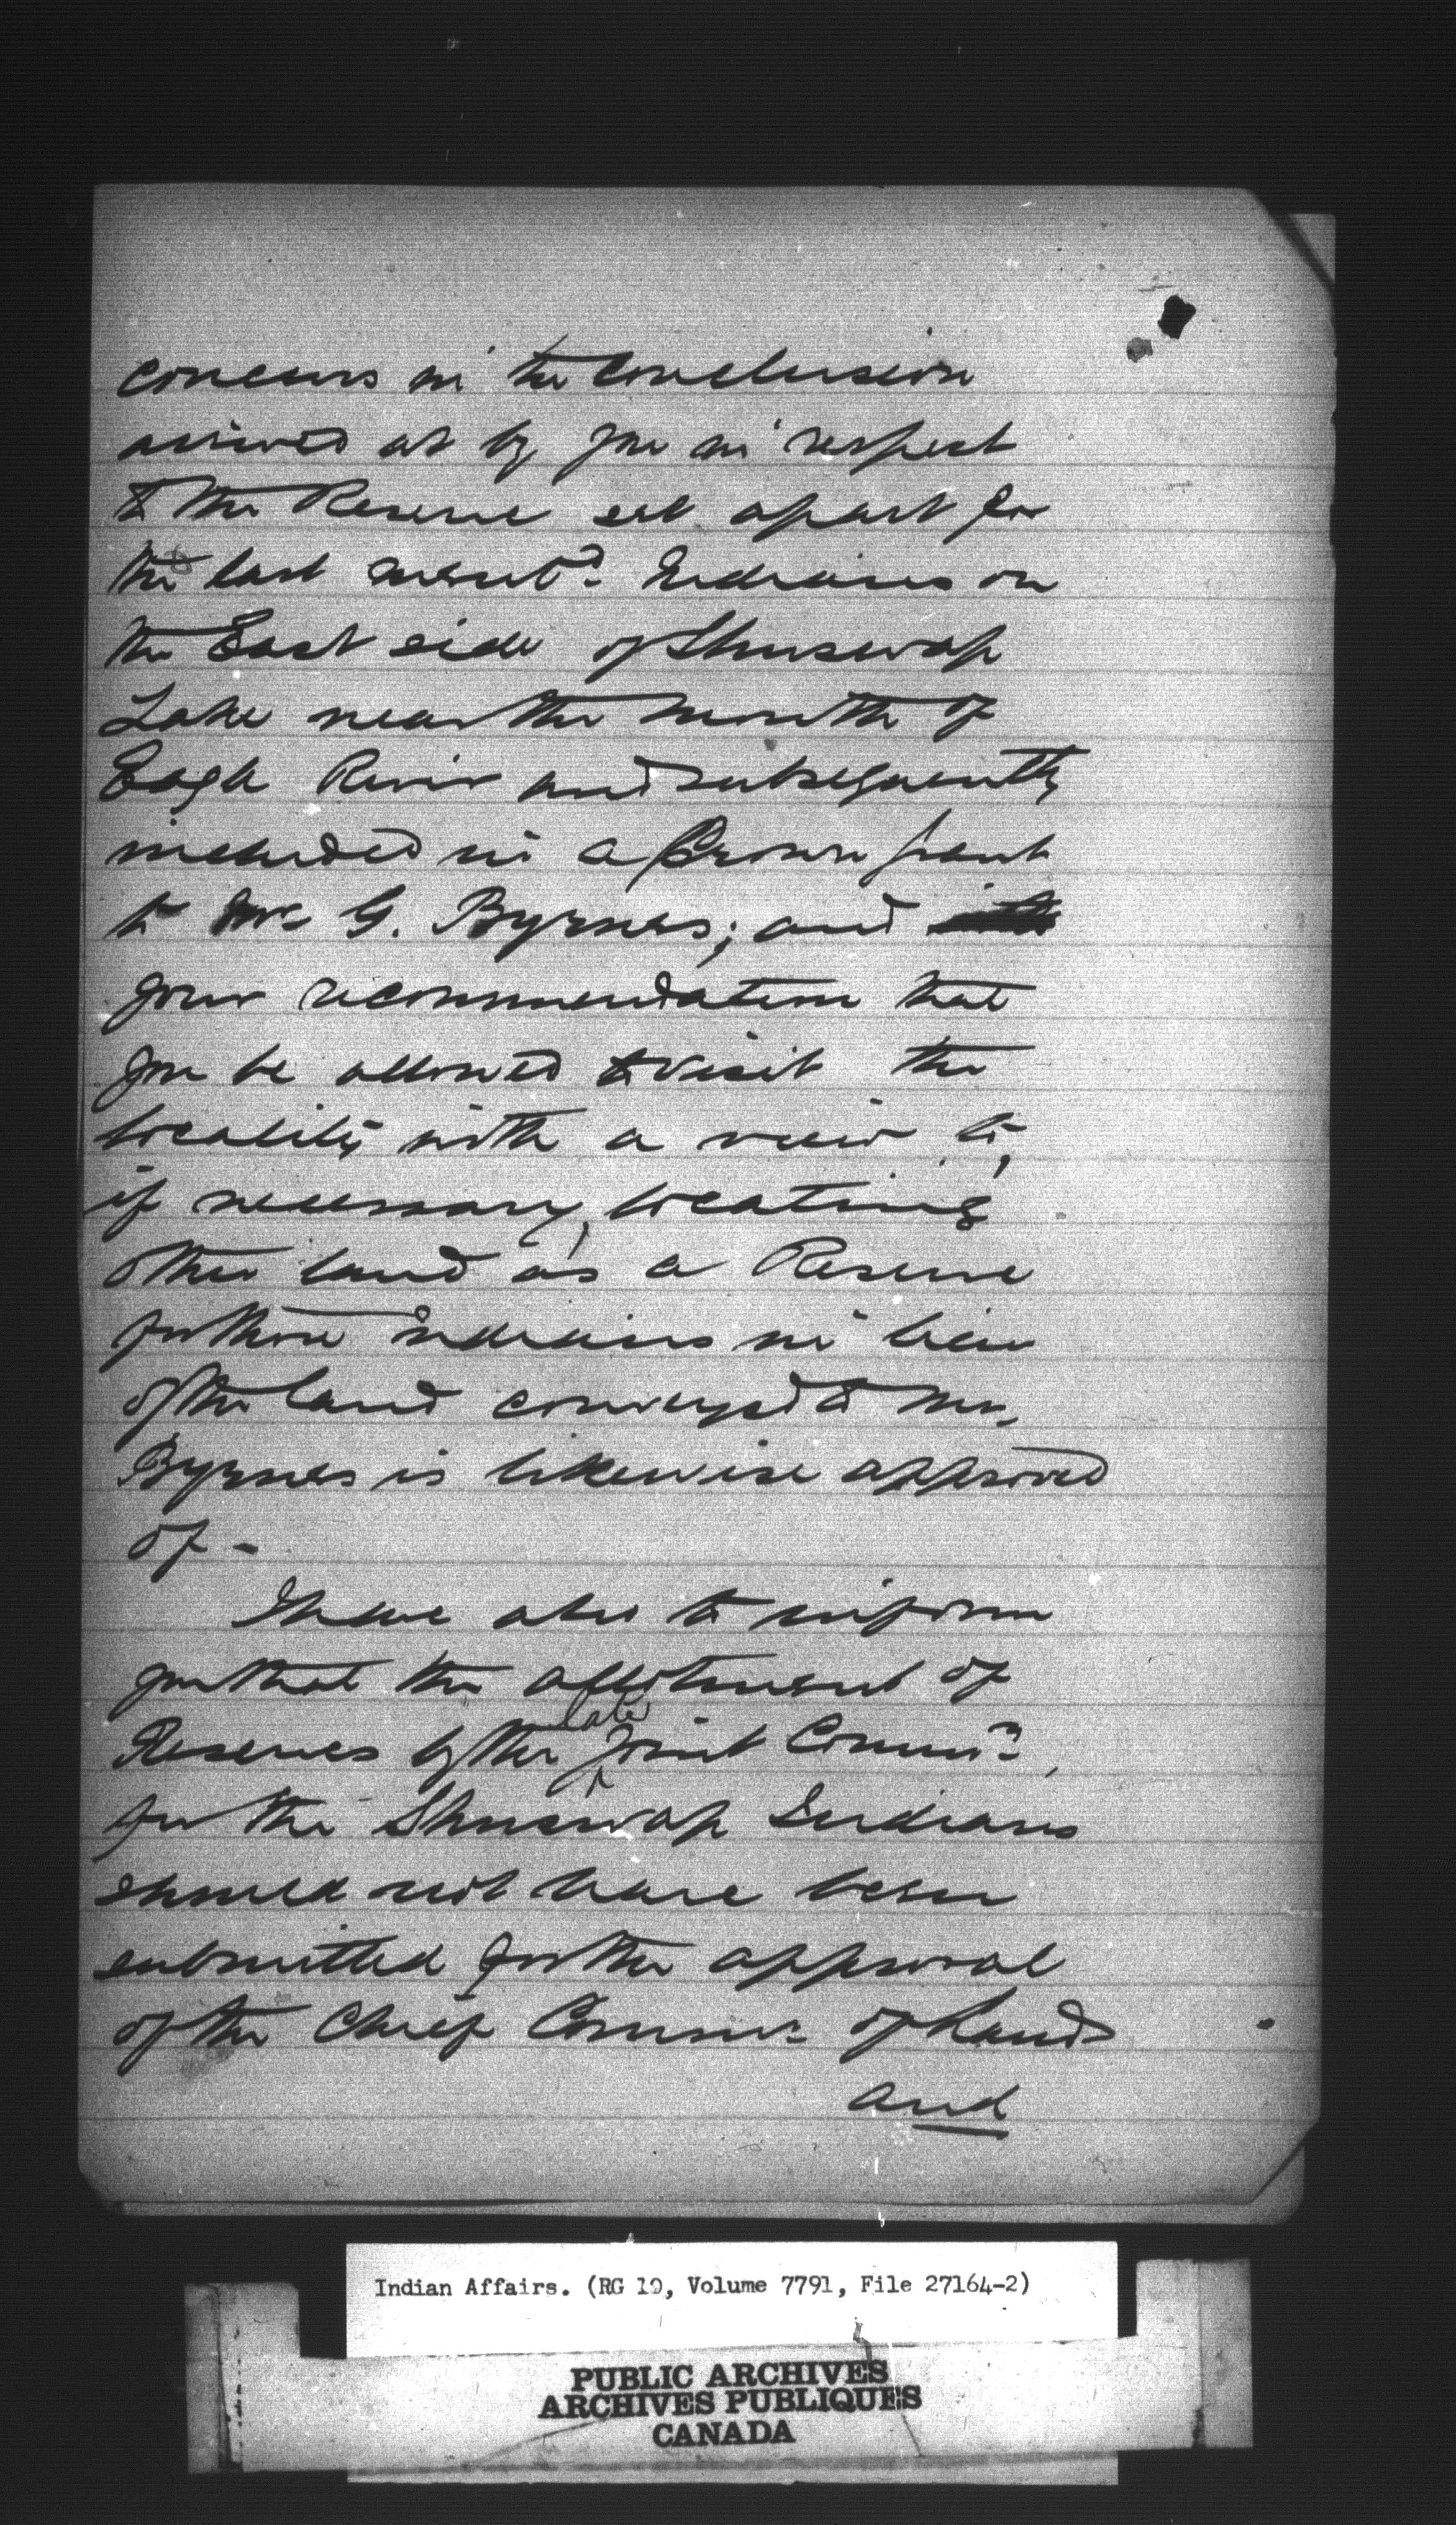 concurs in the Conclusion
arrived at by you in respect
to the Reserve set apart for
the last ment.d Indians on
the East side of Shuswap
Lake near the mouth of
Eagle River and subsequently
included in a Crown grant
to Mr G. Byrnes; and
your recommendation that
you be allowed to visit the
locality with a view to,
if necessary, locating
other land as a Reserve
for those Indians in lieu
of the land conveyed to Mr.
Byrnes is likewise approved
of -
I have also to inform
you that the allotment of
Reserves by the late Joint Commn.
for the Shuswap Indians
should not have been
submitted for the approval
of the Chief Commr. of Lands
and
Indian Affairs. (RG 10, Volume 7791, File 27164-2)
PUBLIC ARCHIVES
ARCHIVES PUBLIQUES
CANADA